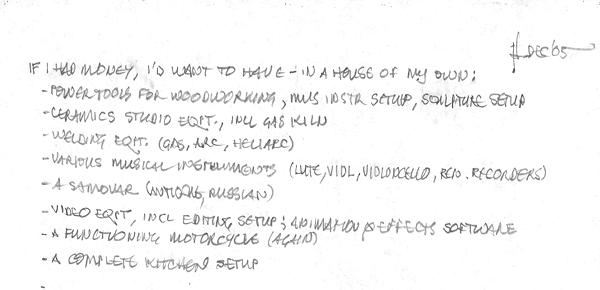 DEC '05
IF I HAD MONEY, I'D WANT TO HAVE - IN A HOUSE OF MY OWN:
- POWER TOOLS FOR WOODWORKING, MUS INSTR SETUP, SCULPTURE SETUP
- CERAMICS STUDIO EQPT., INCL GAS KILN
- WELDING EQPT. (GAS, ARC, HELIARC)
- VARIOUS MUSICAL INSTRUMENTS (LUTE, VIOL, VIOLONCELLO, RECORDERS)
- A SAMOVAR (ANTIQUE, RUSSIAN)
- VIDEO EQPT, INCL EDITING SETUP; ANIMATION & EFFECTS SOFTWARE
- A FUNCTIONING MOTORCYCLE (AGAIN)
- A COMPLETE KITCHEN SETUP
-